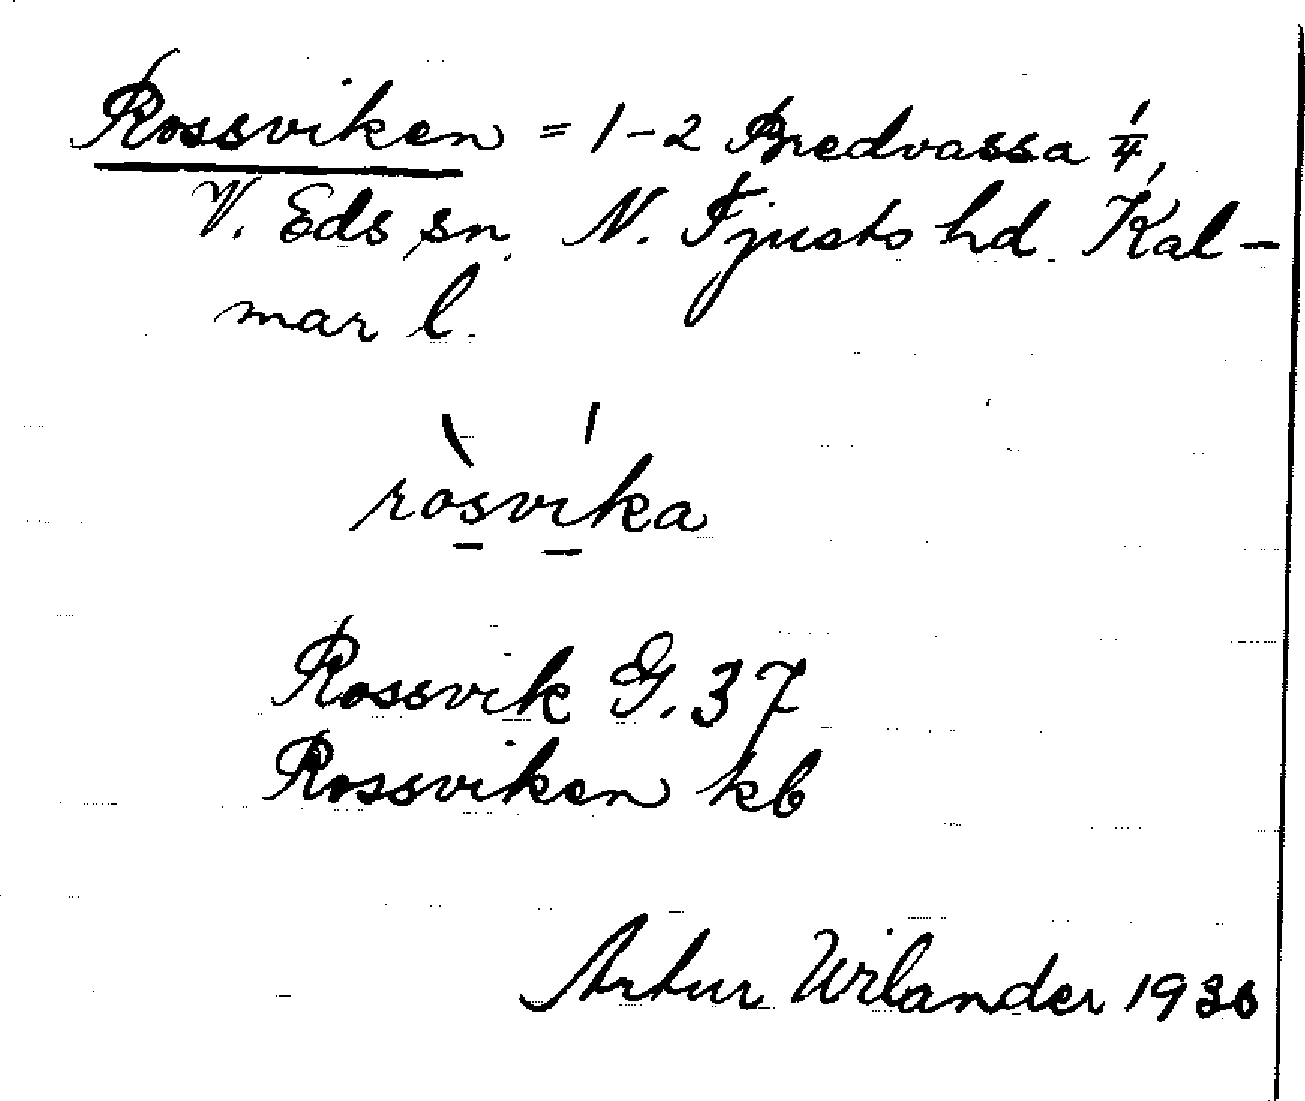 Rossviken = 1-2 Bredvassa 1/4,
V. Eds sn. N. Tjusts hd. Kal-
mar l.
ròsvíka
Rossvik G. 37
Rossviken kb
Artur Wilander